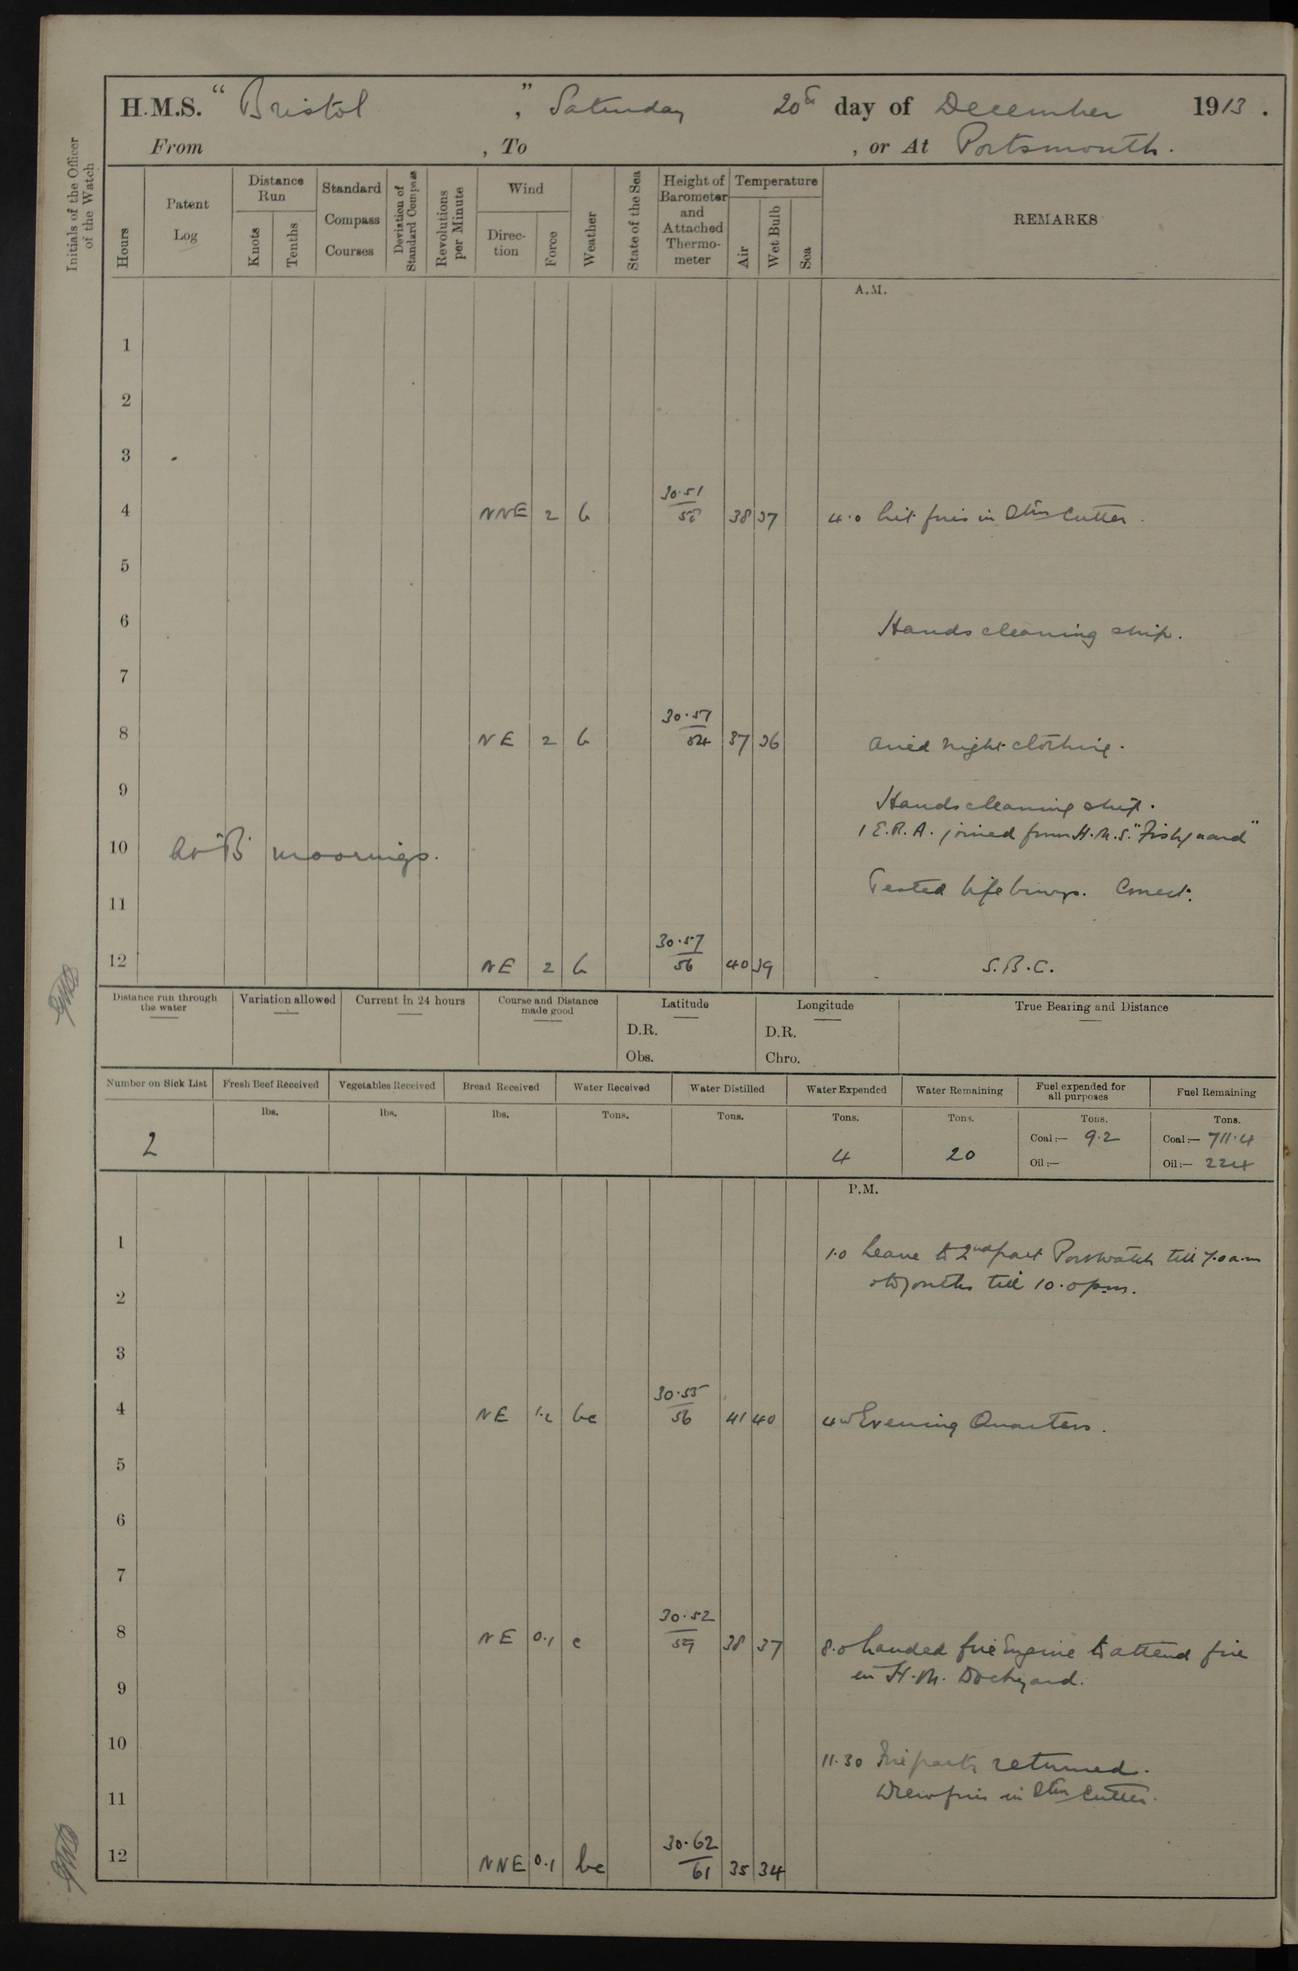 H.M.S. "Bristol", Saturday 20th day of December 1913.
From , To , or At Portsmouth.
Initials of the Officer of the Watch
Hours
Patent Log
Distance Run
Knots
Tenths
Standard Compass Courses
Deviation of Standard Compass
Revolutions per Minute
Wind
Direction
Force
Weather
State of the Sea
Height of Barometer and Attached Thermometer
Temperature
Air
Wet Bulb
Sea
REMARKS
A.M.
1
2
3
4 NNE 2 b 30.51 / 58 38 37 4.0 Lit fires in Stm Cutter.
5
6 Hands cleaning ship.
7
8 NE 2 b 30.57 / 54 37 36 Aired night clothing.
9 Hands cleaning ship.
1 E.R.A. joined from H.M.S. "Fisgard"
10 No "B" moorings.
Tested life buoys. Correct.
11
12 NE 2 b 30.57 / 56 40 39 S.B.C.
Distance run through the water
Variation allowed
Current in 24 hours
Course and Distance made good
Latitude
D.R.
Obs.
Longitude
D.R.
Chro.
True Bearing and Distance
Number on Sick List
Fresh Beef Received
Vegetables Received
Bread Received
Water Received
Water Distilled
Water Expended
Water Remaining
Fuel expended for all purposes
Fuel Remaining
lbs. lbs. lbs. Tons. Tons. Tons. Tons. Tons. Tons.
2 4 20 Coal:— 9.2 Coal:— 711.4
Oil:— Oil:— 224
P.M.
1 1.0 Leave to 2nd part Port Watch till 7.0 a.m
2 till 10.0 p.m.
3
4 NE 1.2 bc 30.55 / 56 41 40 4.0 Evening Quarters.
5
6
7
8 NE 0.1 c 30.52 / 59 38 37 8.0 Landed fire Engine to attend fire
in H.M. Dockyard.
9
10 11.30 Fire party returned.
11 Drew fires in Stm Cutter.
12 NNE 0.1 bc 30.62 / 61 35 34